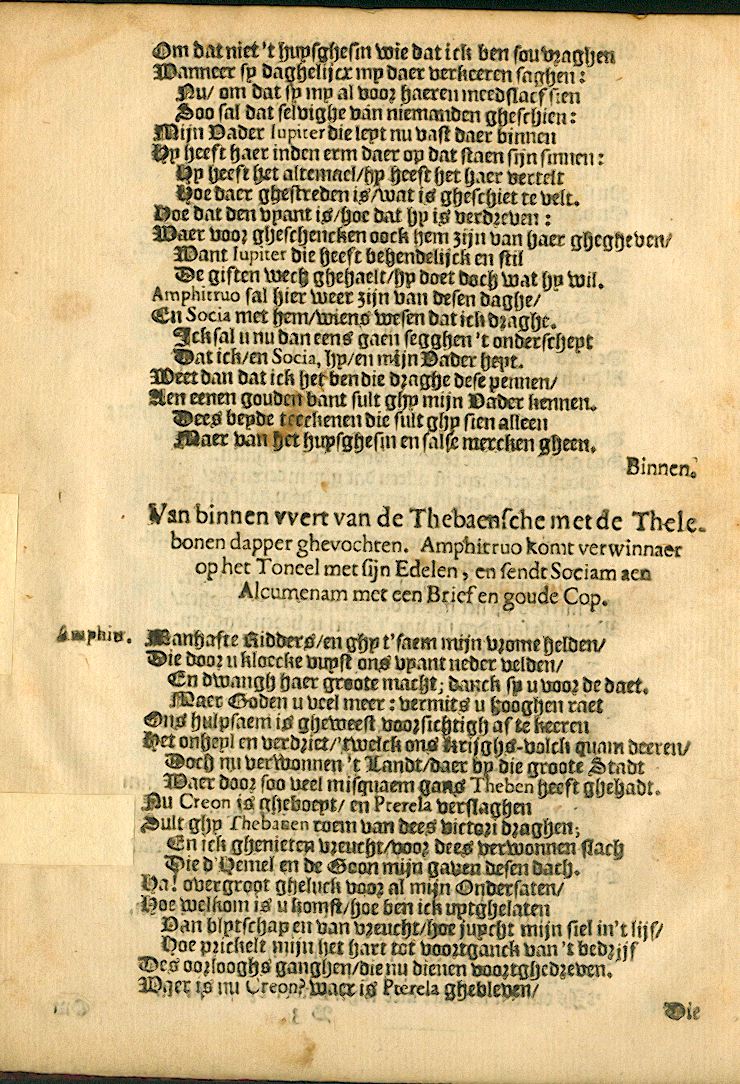 Om dat niet 't huysghesin wie dat ick ben sou vraghen
Wanneer sy daghelijcx my daer verkeeren saghen:
Nu/ om dat sy my al voor haeren meedslaef sien
Soo sal dat selvighe van niemanden gheschien:
Mijn Vader Iupiter die leyt nu vast daer binnen
Hy heeft haer inden erm daer op dat staen sijn sinnen:
Hy heeft het altemael/hy heeft het haer vertelt
Hoe daer ghestreden is/wat is gheschiet te velt.
Hoe dat den vyant is/hoe dat hy is verdreven:
Waer voor gheschencken oock hem zijn van haer ghegheven/
Want Iupiter die heeft behendelijck en stil
De giften wech ghehaelt/hy doet doch wat hy wil.
Amphitruo sal hier weer zijn van desen daghe/
En Socia met hem/wiens wesen dat ick draghe.
Ick sal u nu dan eens gaen segghen 't onderscheyt
Dat ick/en Socia, hy/en mijn Vader heyt.
Weet dan dat ick het ben die draghe dese pennen/
Aen eenen gouden bant sult ghy mijn Vader kennen.
Dees beyde teeckenen die sult ghy sien alleen
Maer van het huysghesin en salse mercken gheen.
Binnen.
Van binnen vvert van de Thebaensche met de Thele-
bonen dapper ghevochten. Amphitruo komt verwinnaer
op het Toneel met sijn Edelen, en sendt Sociam aen
Alcumenam met een Brief en goude Cop.
Amphit. Manhafte Ridders/en ghy t'saem mijn vrome helden/
Die door u kloecke vuyst ons vyant neder velden/
En dwangh haer groote macht; danck sy u voor de daet.
Maer Goden u veel meer: vermits u hooghen raet
Ons hulpsaem is gheweest voorsichtigh af te keeren
Het onheyl en verdriet/'twelck ons Krijghs-volck quam deeren/
Doch nu verwonnen 't Landt/daer by die groote Stadt
Waer door soo veel misquaem gans Theben heeft ghehadt.
Nu Creon is gheboeyt/ en Pterela verslaghen
Sult ghy Thebanen roem van dees victori draghen;
En ick ghenieten vreucht/voor dees verwonnen slach
Die d'Hemel en de Goon mijn gaven desen dach.
Ha! overgroot gheluck voor al mijn Ondersaten/
Hoe welkom is u komst/hoe ben ick uytghelaten
Van blytschap en van vreucht/hoe juycht mijn siel in't lijf/
Hoe prickelt mijn het hart tot voortganck van 't bedrijf
Des oorlooghs ganghen/die nu dienen voortghedreven.
Waer is nu Creon? waer is Pterela ghebleven/
Die